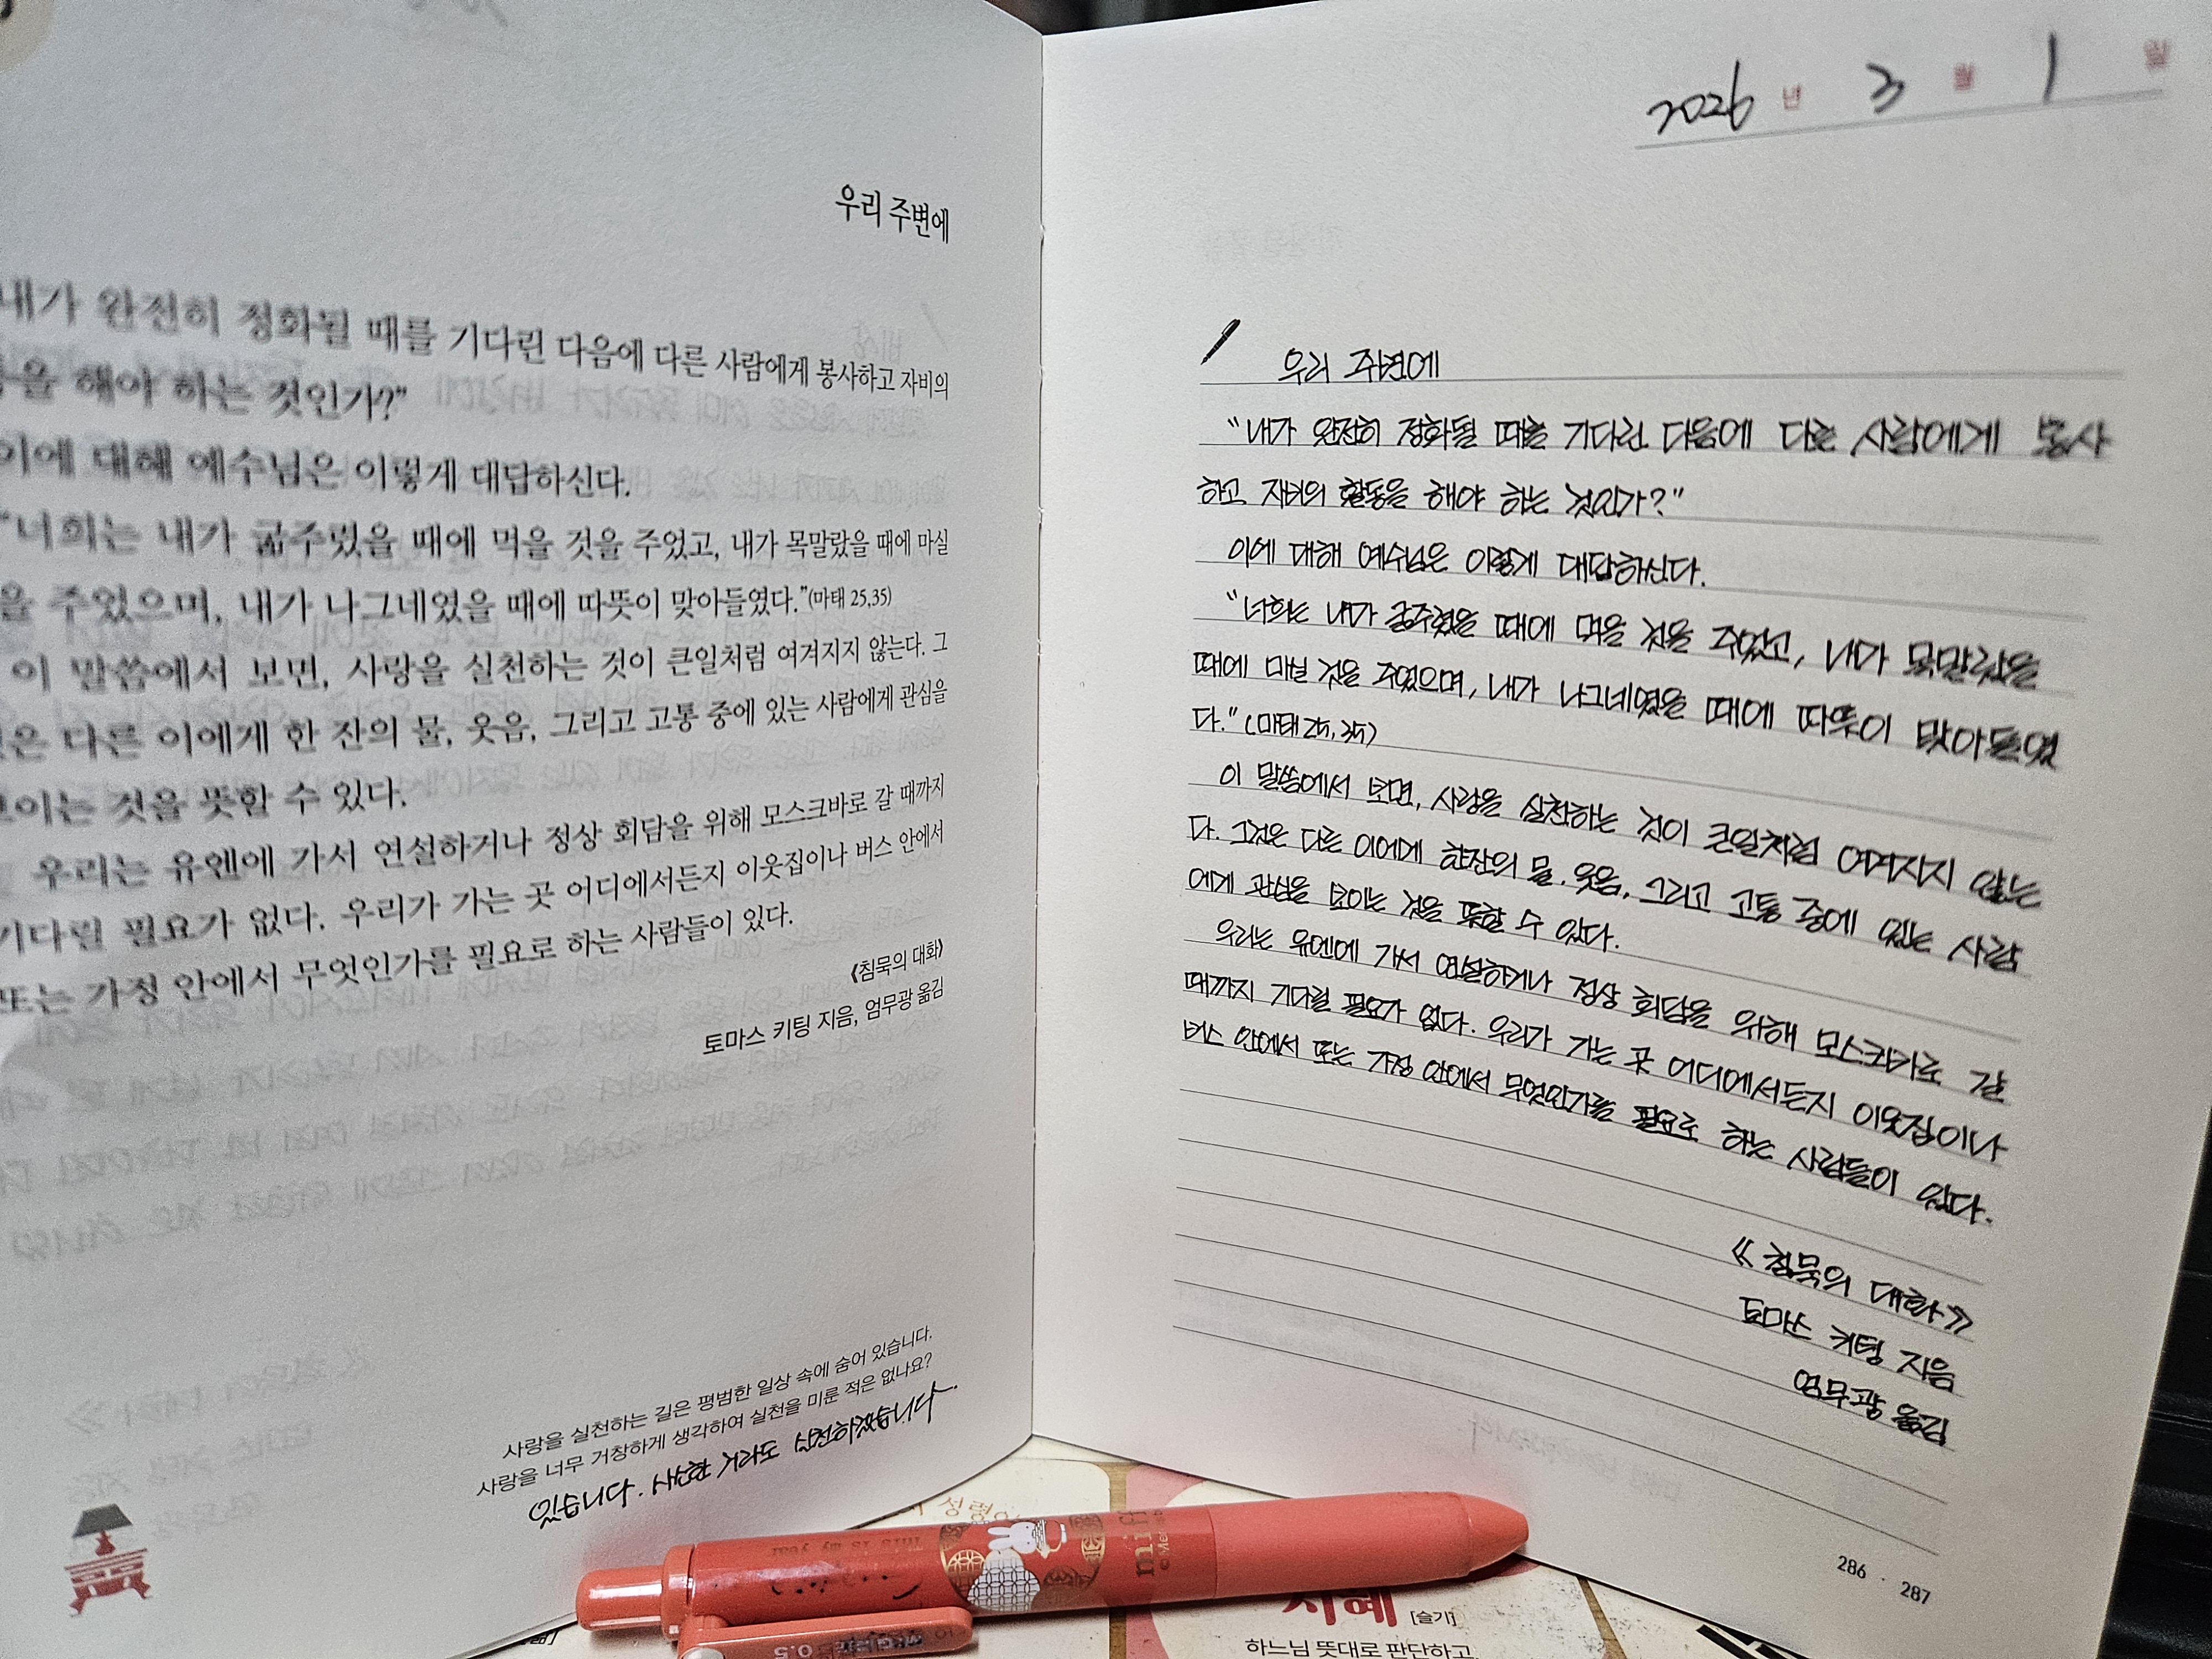 우리 주변에
내가 완전히 정화될 때를 기다린 다음에 다른 사람에게 봉사하고 자비의
을 해야 하는 것인가?"
이에 대해 예수님은 이렇게 대답하신다.
"너희는 내가 굶주렸을 때에 먹을 것을 주었고, 내가 목말랐을 때에 마실
을 주었으며, 내가 나그네였을 때에 따뜻이 맞아들였다."(마태 25,35)
이 말씀에서 보면, 사랑을 실천하는 것이 큰일처럼 여겨지지 않는다. 그
은 다른 이에게 한 잔의 물, 웃음, 그리고 고통 중에 있는 사람에게 관심을
보이는 것을 뜻할 수 있다.
우리는 유엔에 가서 연설하거나 정상 회담을 위해 모스크바로 갈 때까지
기다릴 필요가 없다. 우리가 가는 곳 어디에서든지 이웃집이나 버스 안에서
또는 가정 안에서 무엇인가를 필요로 하는 사람들이 있다.
《침묵의 대화》
토마스 키팅 지음, 엄무광 옮김
사랑을 실천하는 길은 평범한 일상 속에 숨어 있습니다.
사랑을 너무 거창하게 생각하여 실천을 미룬 적은 없나요?
있습니다.
2026년 3월 1일
우리 주변에
"내가 완전히 정화될 때를 기다린 다음에 다른 사람에게 봉사
하고 자비의 활동을 해야 하는 것인가?"
이에 대해 예수님은 이렇게 대답하신다.
"너희는 내가 굶주렸을 때에 먹을 것을 주었고, 내가 목말랐을
때에 마실 것을 주었으며, 내가 나그네였을 때에 따뜻이 맞아들였
다." (마태 25, 35)
이 말씀에서 보면, 사랑을 실천하는 것이 큰일처럼 여겨지지 않는
다. 그것은 다른 이에게 한잔의 물, 웃음, 그리고 고통 중에 있는 사람
에게 관심을 보이는 것을 뜻할 수 있다.
우리는 유엔에 가서 연설하거나 정상 회담을 위해 모스크바로 갈
때까지 기다릴 필요가 없다. 우리가 가는 곳 어디에서든지 이웃집이나
버스 안에서 또는 가정 안에서 무엇인가를 필요로 하는 사람들이 있다.
《침묵의 대화》
토마스 키팅 지음
엄무광 옮김
286 · 287
This is my year
0.5
성령
지혜 [슬기]
하느님 뜻대로 판단하고